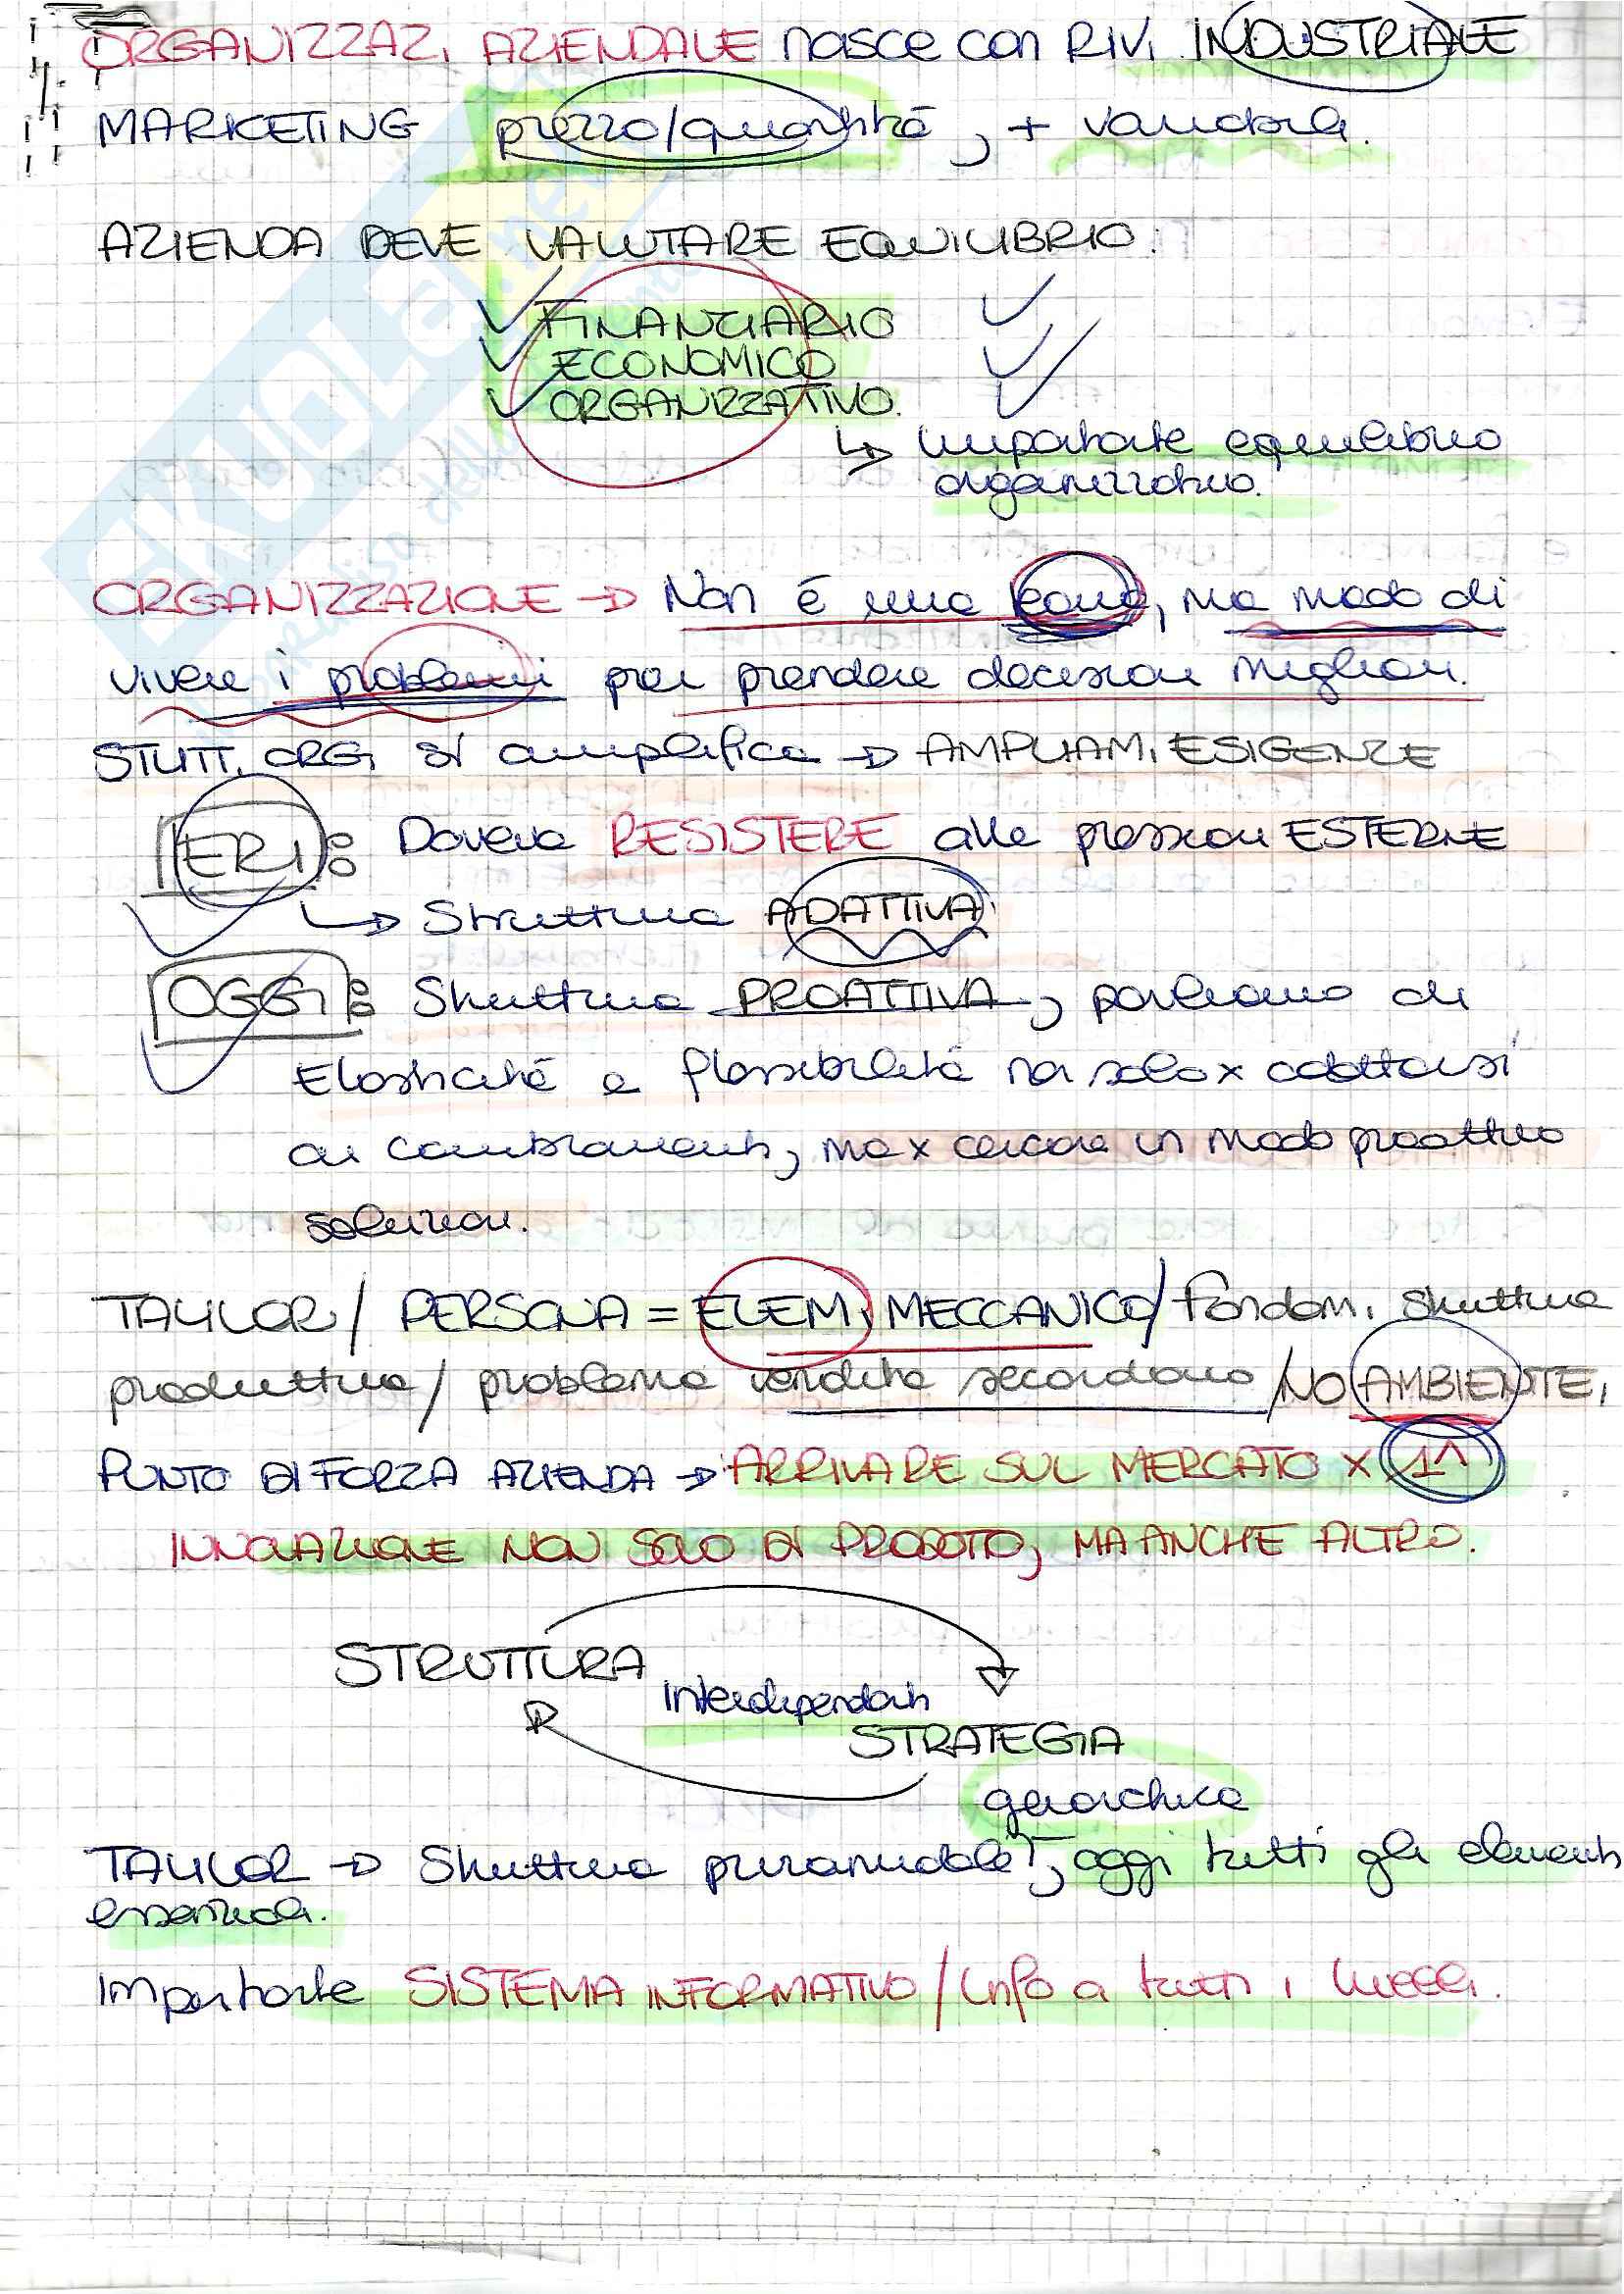 ORGANIZZAZ. AZIENDALE nasce con RIV. INDUSTRIALE
MARKETING prezzo/quantità, + vendora.
AZIENDA DEVE VALUTARE EQUILIBRIO:
FINANZIARIO
ECONOMICO
ORGANIZZATIVO.
↳ importante equilibrio
organizzativo.
ORGANIZZAZIONE → Non è una cosa, ma modo di
vivere i problemi per prendere decisioni migliori.
STUTT. ORG. si amplifica → AMPLIAM. ESIGENZE
IERI: Doveva RESISTERE alle pressioni ESTERNE
↳ Struttura ADATTIVA
OGGI: Struttura PROATTIVA, parliamo di
Elasticità e flessibilità non solo x adattarsi
ai cambiamenti, ma x cercare in modo proattivo
soluzioni.
TAYLOR / PERSONA = ELEM. MECCANICO / Fondam. struttura
produttiva / problema vendita secondario / NO AMBIENTE,
PUNTO DI FORZA AZIENDA → ARRIVARE SUL MERCATO X 1^
INNOVAZIONE NON SOLO DI PRODOTTO, MA ANCHE ALTRO.
STRUTTURA
interdipendenti
STRATEGIA
gerarchica
TAYLOR → Struttura piramidale, oggi tutti gli elementi
essenziali.
Importante SISTEMA INFORMATIVO / info a tutti i livelli.
SKUOLA.net